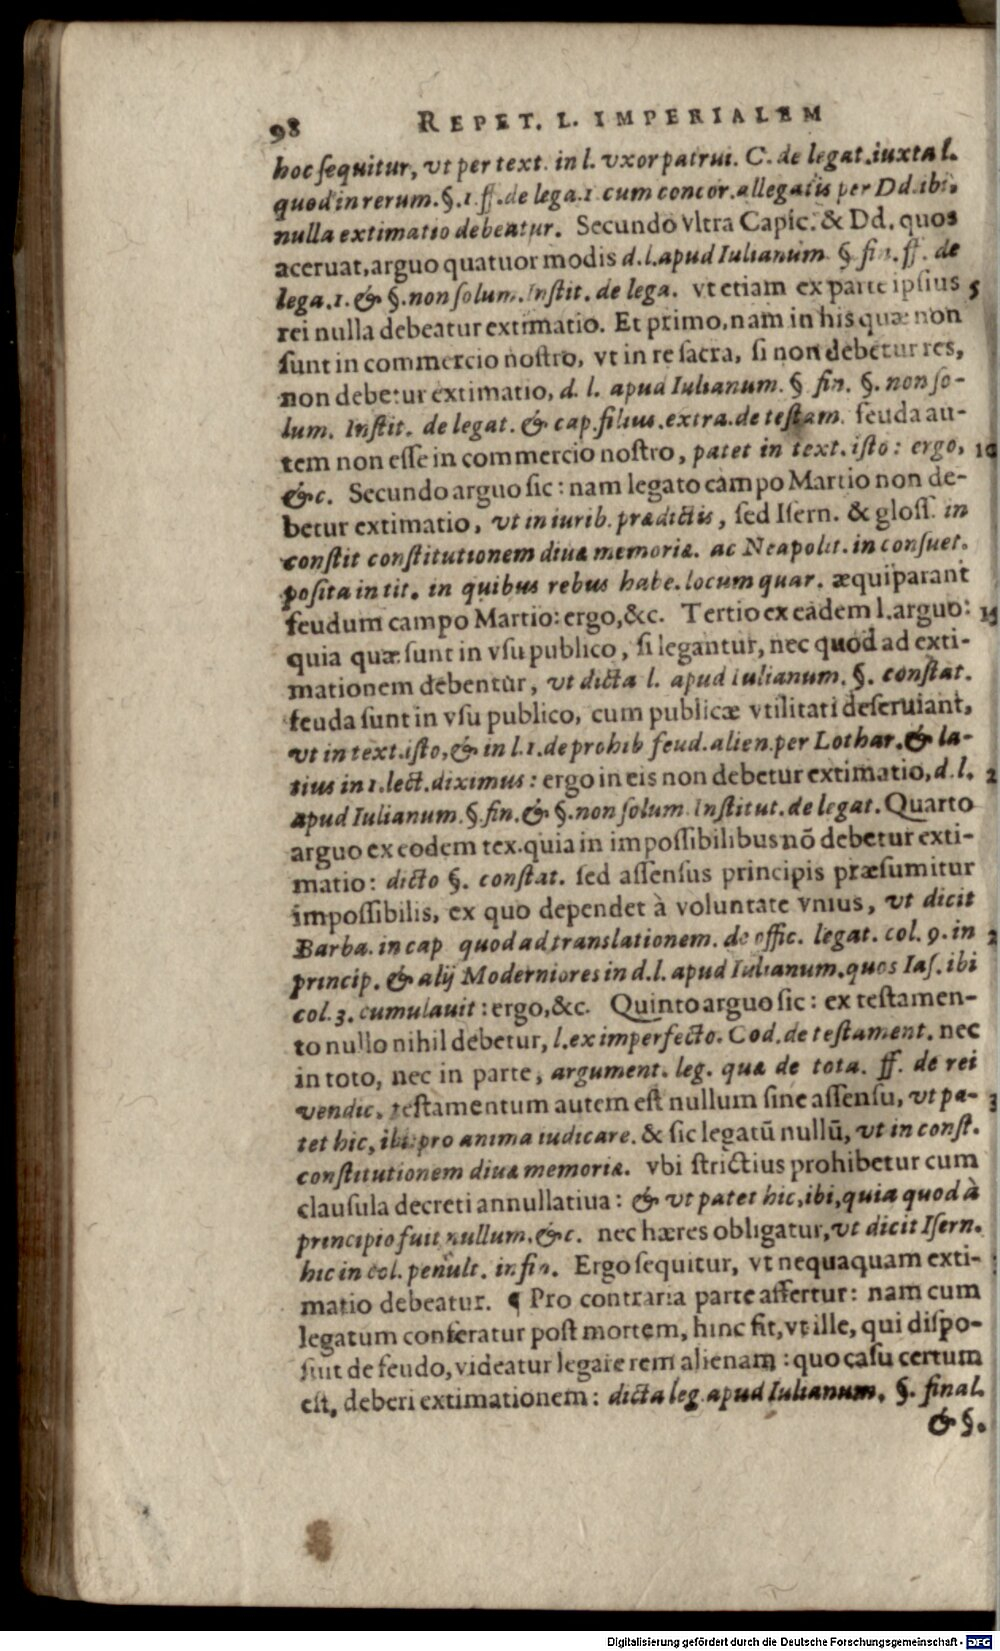 98 REPET. L. IMPERIALEM
hoc sequitur, vt per text. in l. vxor patrui. C. de legat. iuxta l.
quod in rerum. §. 1. ff. de lega. 1. cum concor. allegatis per Dd. ibi.
nulla extimatio debeatur. Secundò vltra Capic. & Dd. quos
aceruat, arguo quatuor modis d. l. apud Iulianum. § fin. ff. de
lega. 1. & §. non solum. Instit. de lega. vt etiam ex parte ipsius 5
rei nulla debeatur extimatio. Et primo, nam in his quæ non
sunt in commercio nostro, vt in re sacra, si non debetur res,
non debetur extimatio, d. l. apud Iulianum. § fin. §. non so-
lum. Instit. de legat. & cap. filius. extra. de testam. feuda au-
tem non esse in commercio nostro, patet in text. isto: ergo, 10
&c. Secundo arguo sic: nam legato campo Martio non de-
betur extimatio, vt in iurib. prædictis, sed Isern. & gloss. in
constit constitutionem diuæ memoriæ. ac Neapolit. in consuet.
posita in tit. in quibus rebus habe. locum quar. æquiparant
feudum campo Martio: ergo, &c. Tertio ex eadem l. arguo: 15
quia quæ sunt in vsu publico, si legantur, nec quod ad exti-
mationem debentur, vt dicta l. apud Iulianum. §. constat.
feuda sunt in vsu publico, cum publicæ vtilitati deseruiant,
vt in text. isto, & in l. 1. de prohib feud. alien. per Lothar. & la-
tius in 1. lect. diximus: ergo in eis non debetur extimatio, d. l. 2
apud Iulianum. §. fin. & §. non solum. Institut. de legat. Quarto
arguo ex eodem tex. quia in impossibilibus nõ debetur exti-
matio: dicto §. constat. sed assensus principis præsumitur
impossibilis, ex quo dependet à voluntate vnius, vt dicit
Barba. in cap quod ad translationem. de offic. legat. col. 9. in 2
princip. & alij Moderniores in d. l. apud Iulianum. quos Ias. ibi
col. 3. cumulauit: ergo, &c. Quinto arguo sic: ex testamen-
to nullo nihil debetur, l. ex imperfecto. Cod. de testament. nec
in toto, nec in parte, argument. leg. quæ de tota. ff. de rei
vendic. testamentum autem est nullum sine assensu, vt pa- 3
tet hic, ibi: pro anima iudicare. & sic legatũ nullũ, vt in const.
constitutionem diuæ memoriæ. vbi strictius prohibetur cum
clausula decreti annullatiua: & vt patet hic, ibi, quia quod à
principio fuit nullum. &c. nec hæres obligatur, vt dicit Isern.
hic in col. penult. in fin. Ergo sequitur, vt nequaquam exti-
matio debeatur. ¶ Pro contraria parte affertur: nam cum
legatum conferatur post mortem, hinc fit, vt ille, qui dispo-
suit de feudo, videatur legare rem alienam: quo casu certum
est, deberi extimationem: dicta leg. apud Iulianum. §. final.
& §.
Digitalisierung gefördert durch die Deutsche Forschungsgemeinschaft - DFG